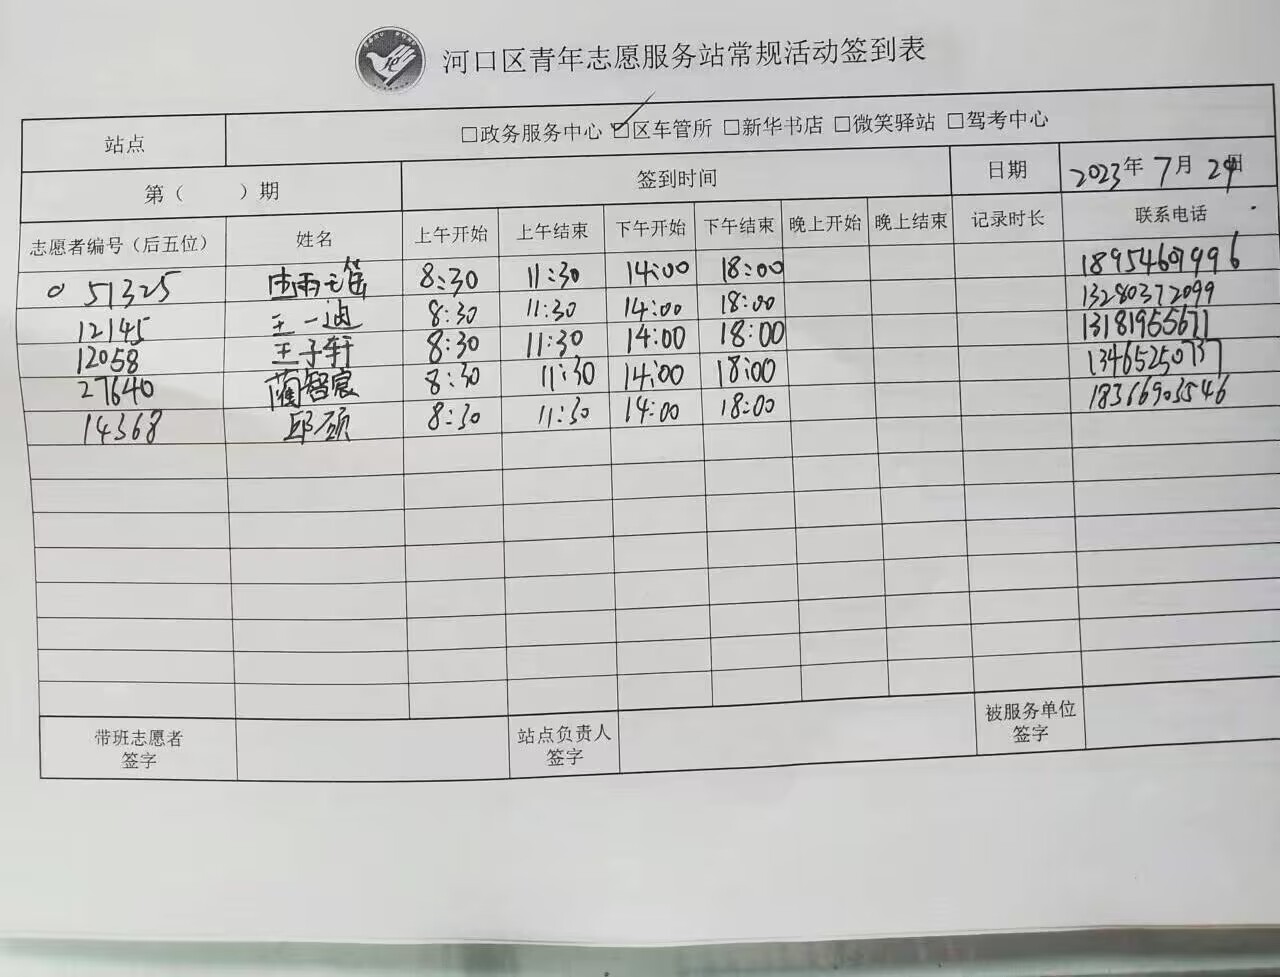 河口区青年志愿服务站常规活动签到表
站点 □政务服务中心 ☑区车管所 □新华书店 □微笑驿站 □驾考中心
第（ ）期 签到时间 日期 2023年 7月 29日
志愿者编号（后五位） 姓名 上午开始 上午结束 下午开始 下午结束 晚上开始 晚上结束 记录时长 联系电话
51325 8:30 11:30 14:00 18:00 18954609996
12145 王一迪 8:30 11:30 14:00 18:00 13280372099
12058 王子轩 8:30 11:30 14:00 18:00 13181955671
27640 蔺智宸 8:30 11:30 14:00 18:00 13465250737
14368 邱硕 8:30 11:30 14:00 18:00 18366903546
带班志愿者 签字 站点负责人 签字 被服务单位 签字